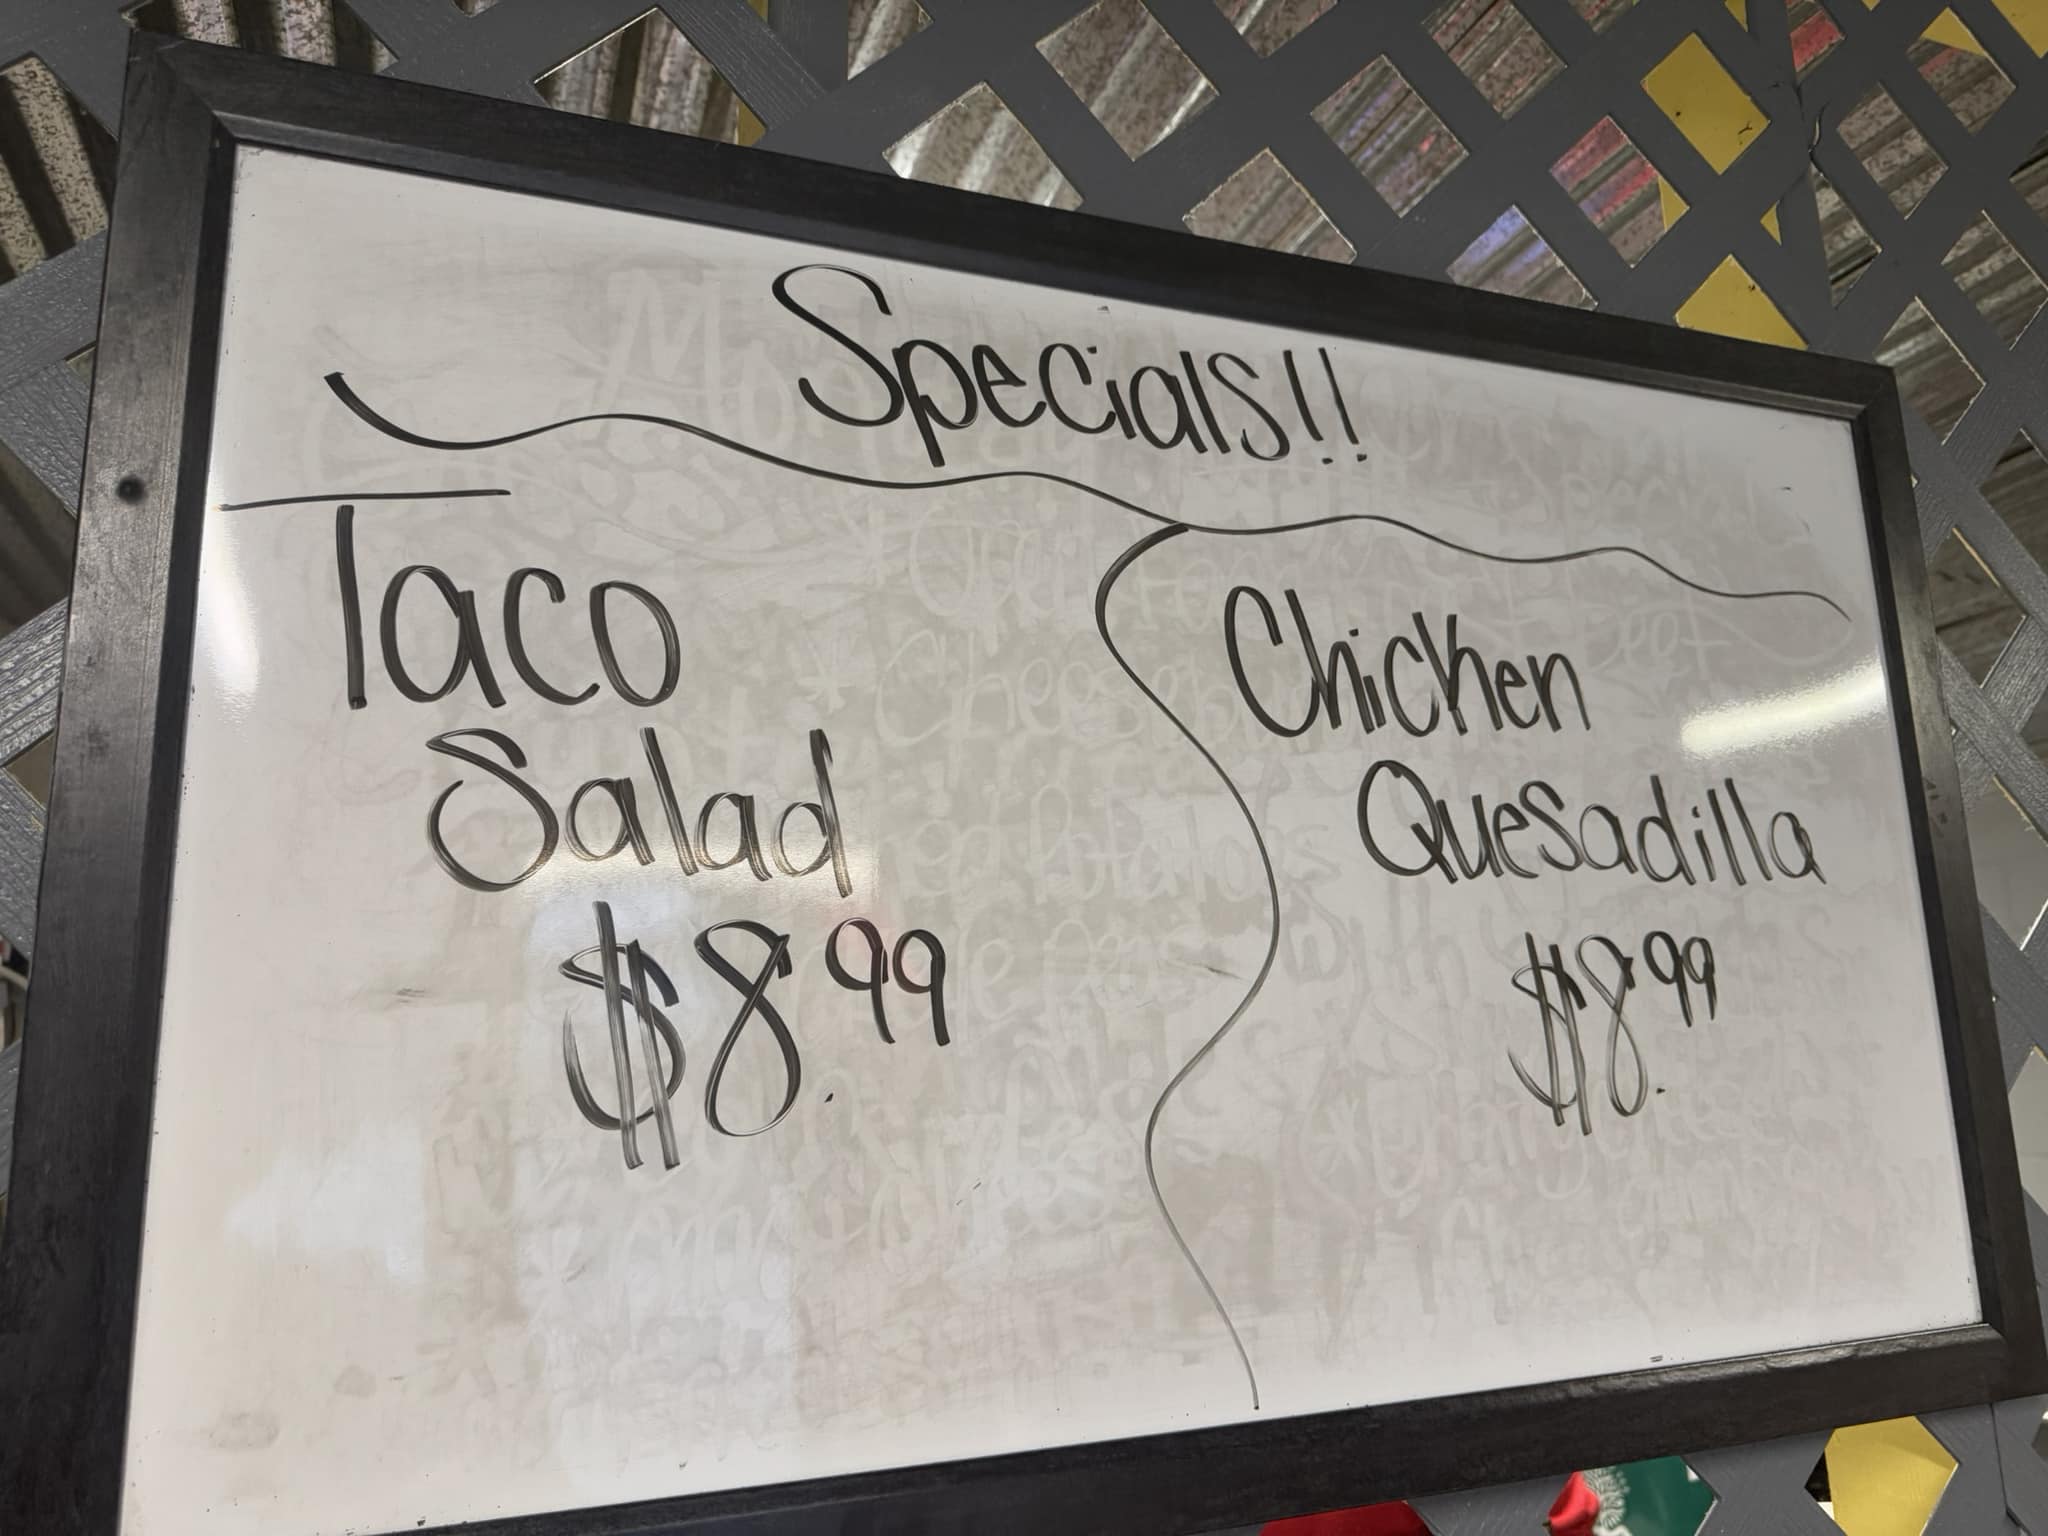 Specials!!
Taco
Salad
$8.99
Chicken
Quesadilla
$8.99